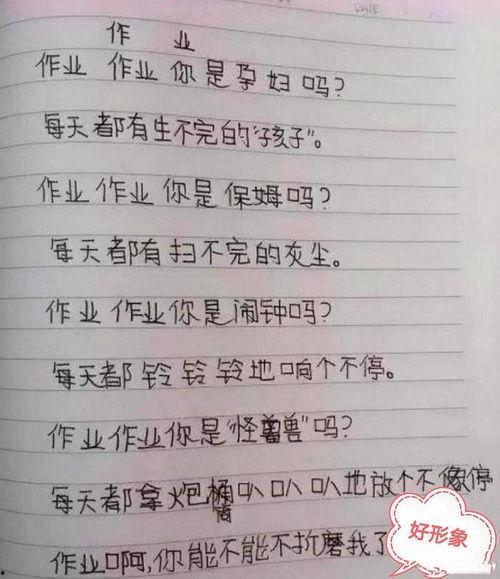 DATE
作 业
作业 作业你是孕妇吗？
每天都有生不完的“孩子”。
作业 作业 你是保姆吗？
每天都有扫不完的灰尘。
作业 作业你是闹钟吗？
每天都铃铃铃地响个不停。
作业作业你是“怪兽”吗？
每天都拿火炮桶叭叭叭地放个不停
筒
作业啊，你能不能不折磨我了
好形象